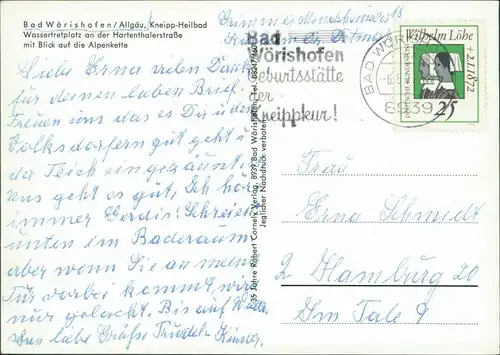 Bad Wörishofen / Allgäu, Kneipp-Heilbad
Wassertretplatz an der Hartenthalerstraße
mit Blick auf die Alpenkette
Liebe Erna vielen Dank
für deinen lieben Brief.
Freuen uns das es Dir u. den
Volksdorfern gut geht u.
der Teich eingezäunt.
uns geht es gut, Ich hör
immer Gerdis: Schreien
unten im Baderaum
aber wenn Sie an meine
Tür vorbei kommt, wird
nur gelacht. Bis auf
liebe Grüße
35 Jahre Robert Cornely Verlag, 8939 Bad Wörishofen, Tel. 08247/401
Jeglicher Nachdruck verboten
Bad
Wörishofen
Geburtsstätte
der
Kneippkur!
BAD WÖR
8939
Wilhelm Löhe
+ 2.1.1872
DEUTSCHE BUNDESPOST
25
Frau
Erna Schmidt
2 Hamburg 20
Im Tale 9